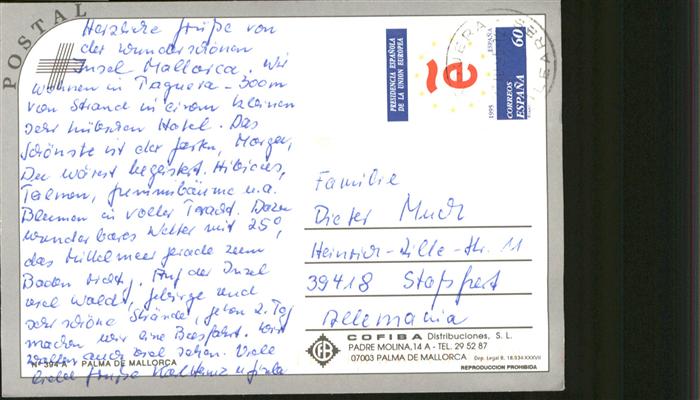 POSTAL
Herzliche Grüße von
der wunderschönen
Insel Mallorca. Wir
wohnen in Paguera - 300m
vom Strand in einem kleinen
sehr hübschen Hotel. Das
Schönste ist der Garten,
Du wärst begeistert. Hibiscus,
Palmen, Gummibäume u.a.
Blumen in voller Pracht. Dazu
wunderbares Wetter mit 25°,
das Mittelmeer gerade zum
Baden richtig. Auf der Insel
viel Wald, Gebirge und
sehr schöne Strände, jeden 2. Tag
machen wir eine Busfahrt. Wir
wollen auch viel sehen. Viele
liebe Grüße Karlheinz u.
Nº 394-A PALMA DE MALLORCA
PRESIDENCIA ESPAÑOLA
DE LA UNION EUROPEA
ē
1995
ESPAÑA
60
CORREOS
ESPAÑA
Familie
Dieter
Heinrich-Zille-Str. 11
39418 Staßfurt
Allemania
COFIBA Distribuciones, S. L.
PADRE MOLINA, 14 A - TEL. 29 52 87
07003 PALMA DE MALLORCA
Dep. Legal B. 18.934-XXXVII
REPRODUCCION PROHIBIDA